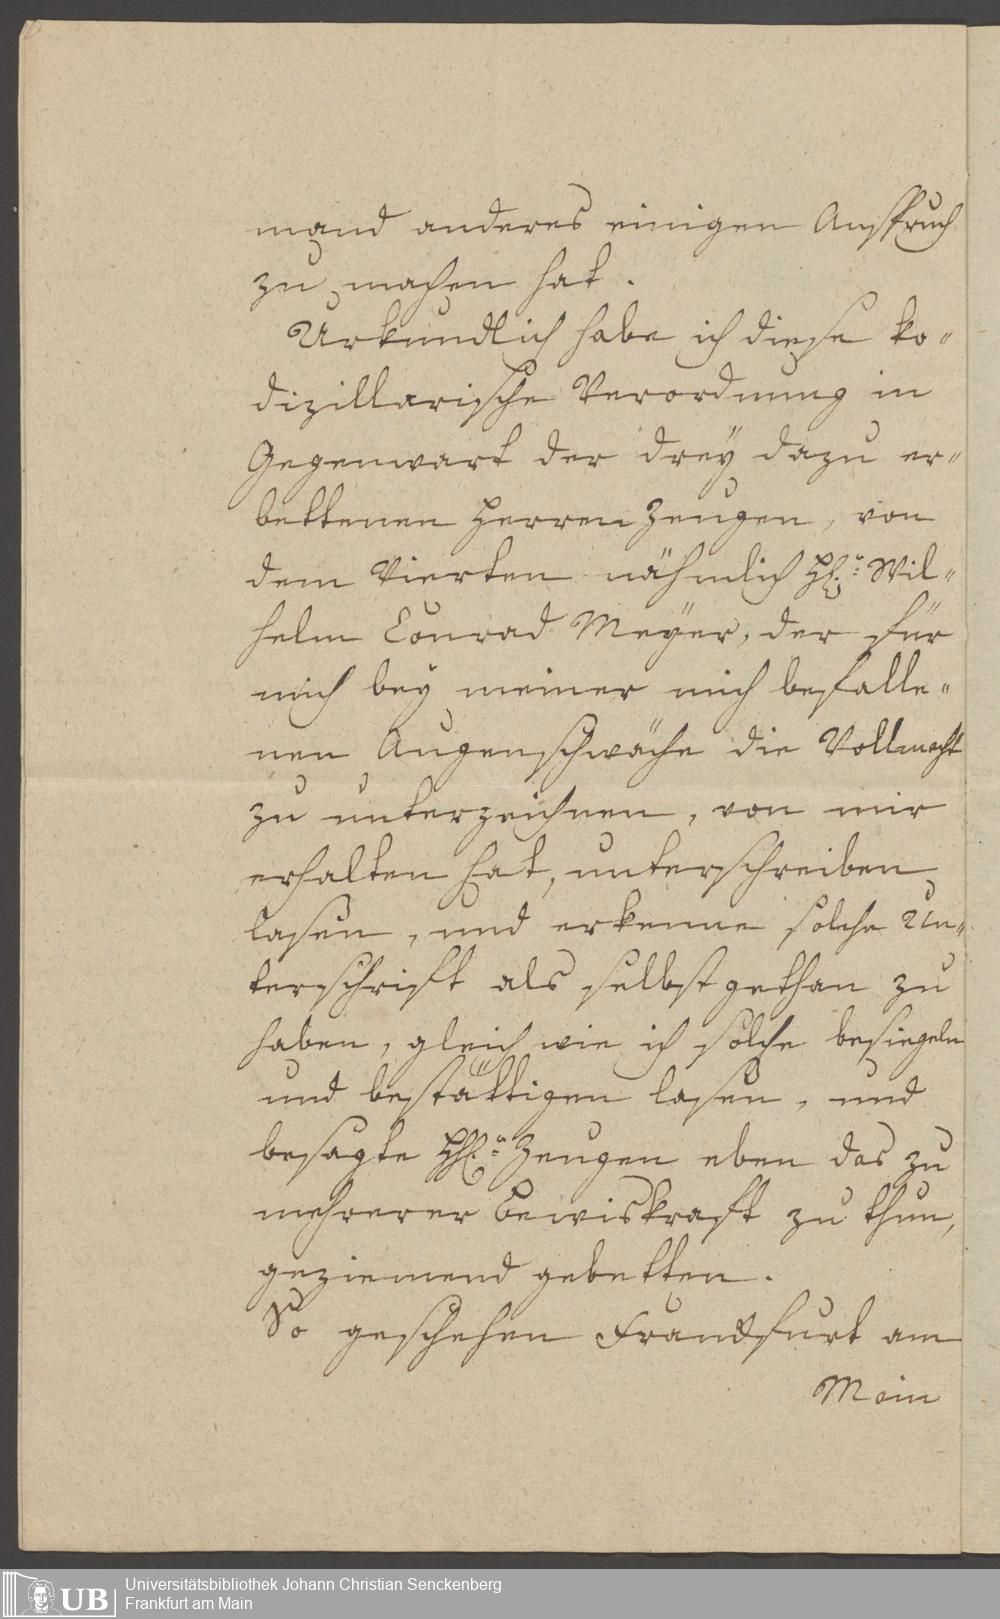 mand anderes einigen Anspruch
zu machen hat.
Urkundlich habe ich diese ko-
dizillarische Verordnung in
Gegenwart der drey dazu er-
bettenen Herren Zeugen, von
dem Vierten nähmlich H. Wil-
helm Conrad Meÿer, der für
mich bey meiner mich befalle-
nen Augenschwäche die Vollmacht
zu unterzeichnen, von mir
erhalten hat, unterschreiben
lasen, und erkenne solche Un-
terschrift als selbst gethan zu
haben, gleich wie ich solche besiegeln
und bestättigen lasen, und
besagte HH. Zeugen eben das zu
mehrerer Bewiskraft zu thun,
geziemend gebetten.
So geschehen Franckfurt am
Main
UB
Universitätsbibliothek Johann Christian Senckenberg
Frankfurt am Main